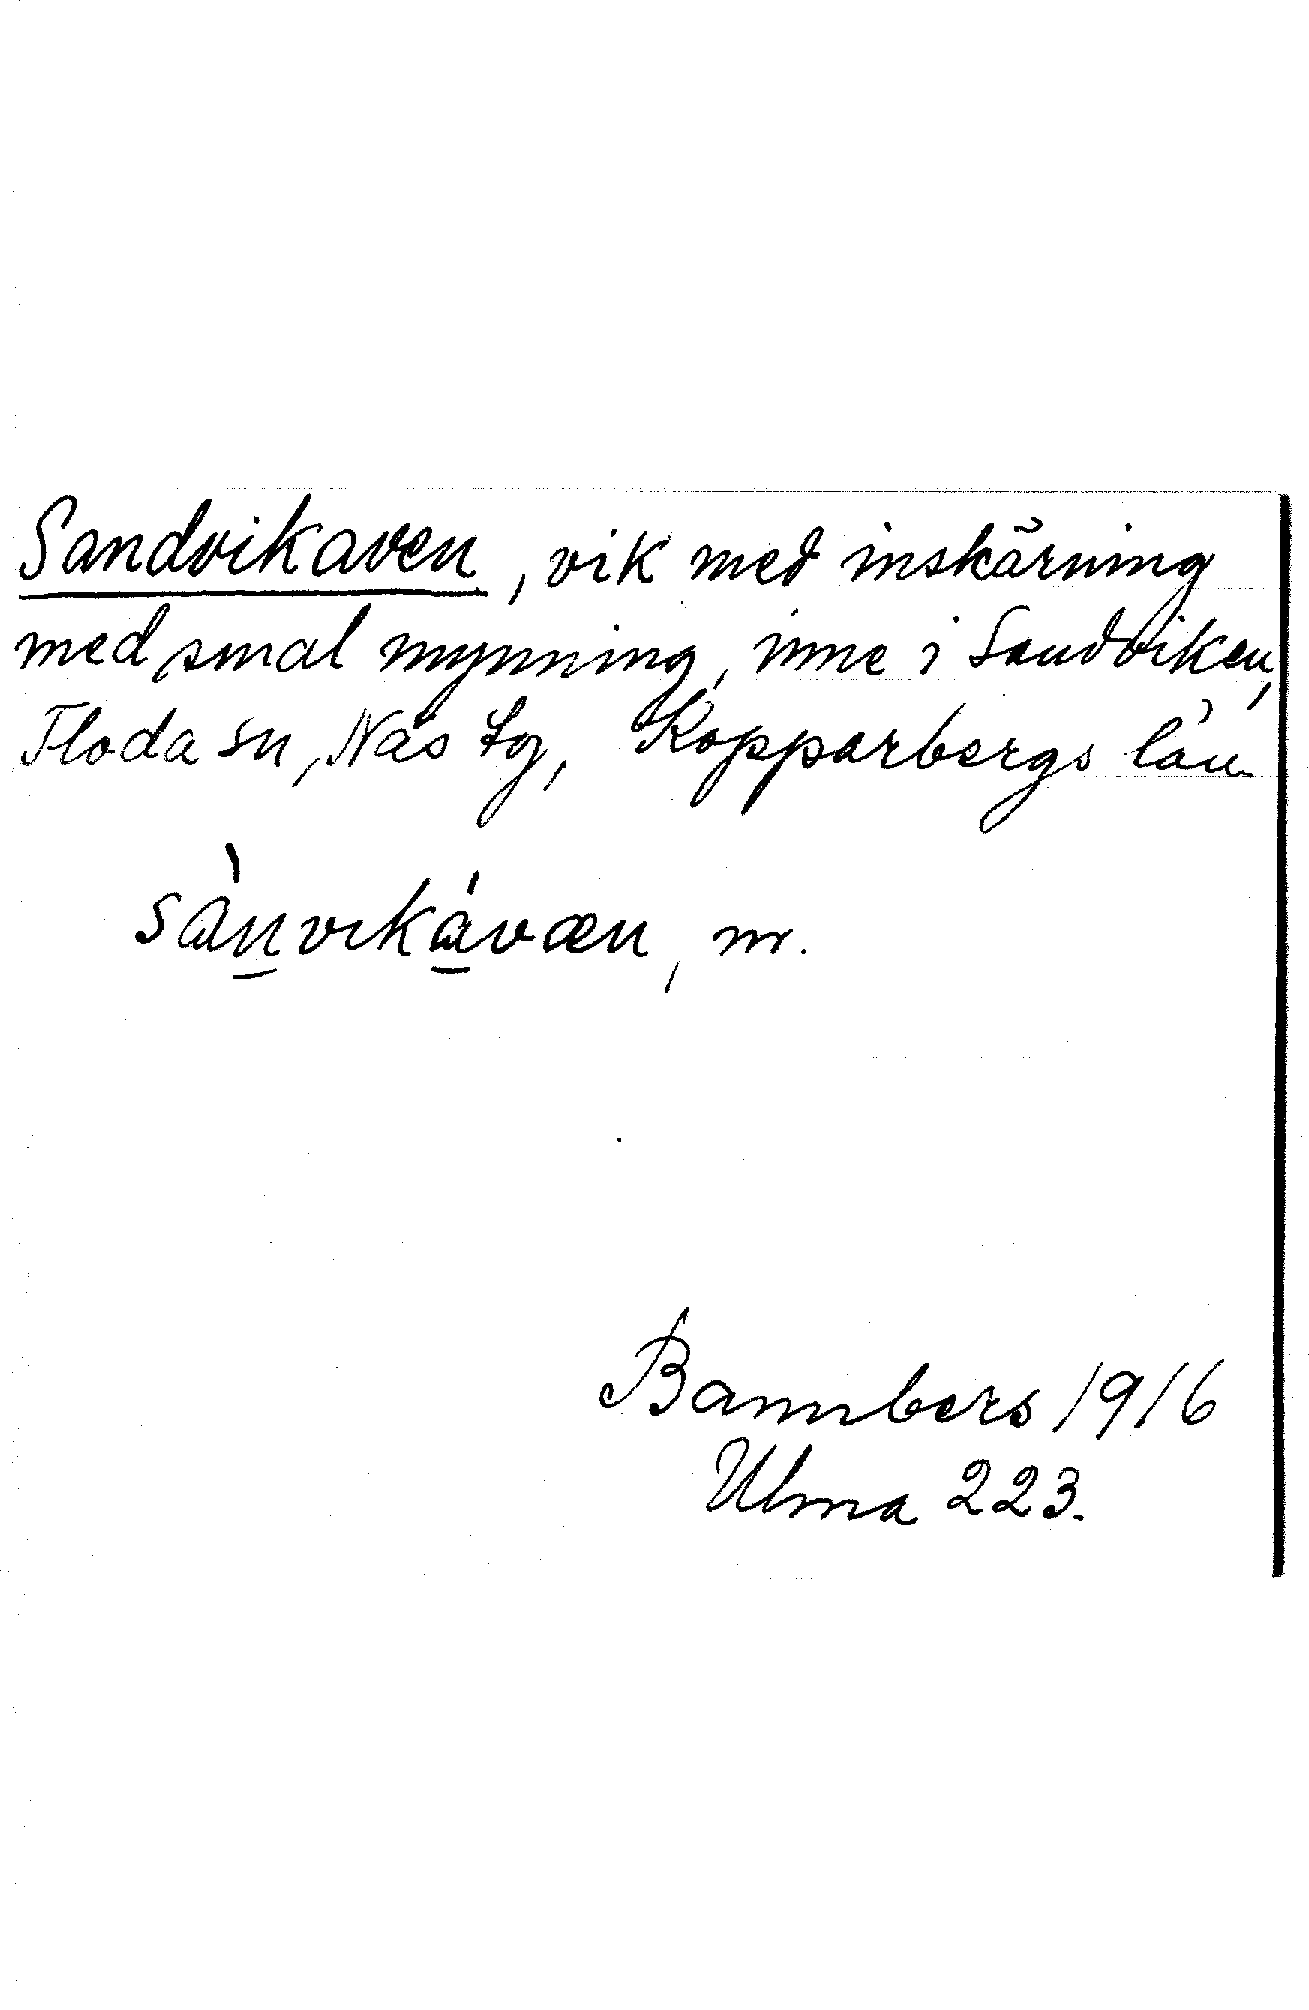 Sandvikaven, vik med inskärning
med smal mynning, inne i Sandviken,
Floda sn, Näs tg, Kopparbergs län
sànvikávæn, m.
Bannbers 1916
Ulma 223.